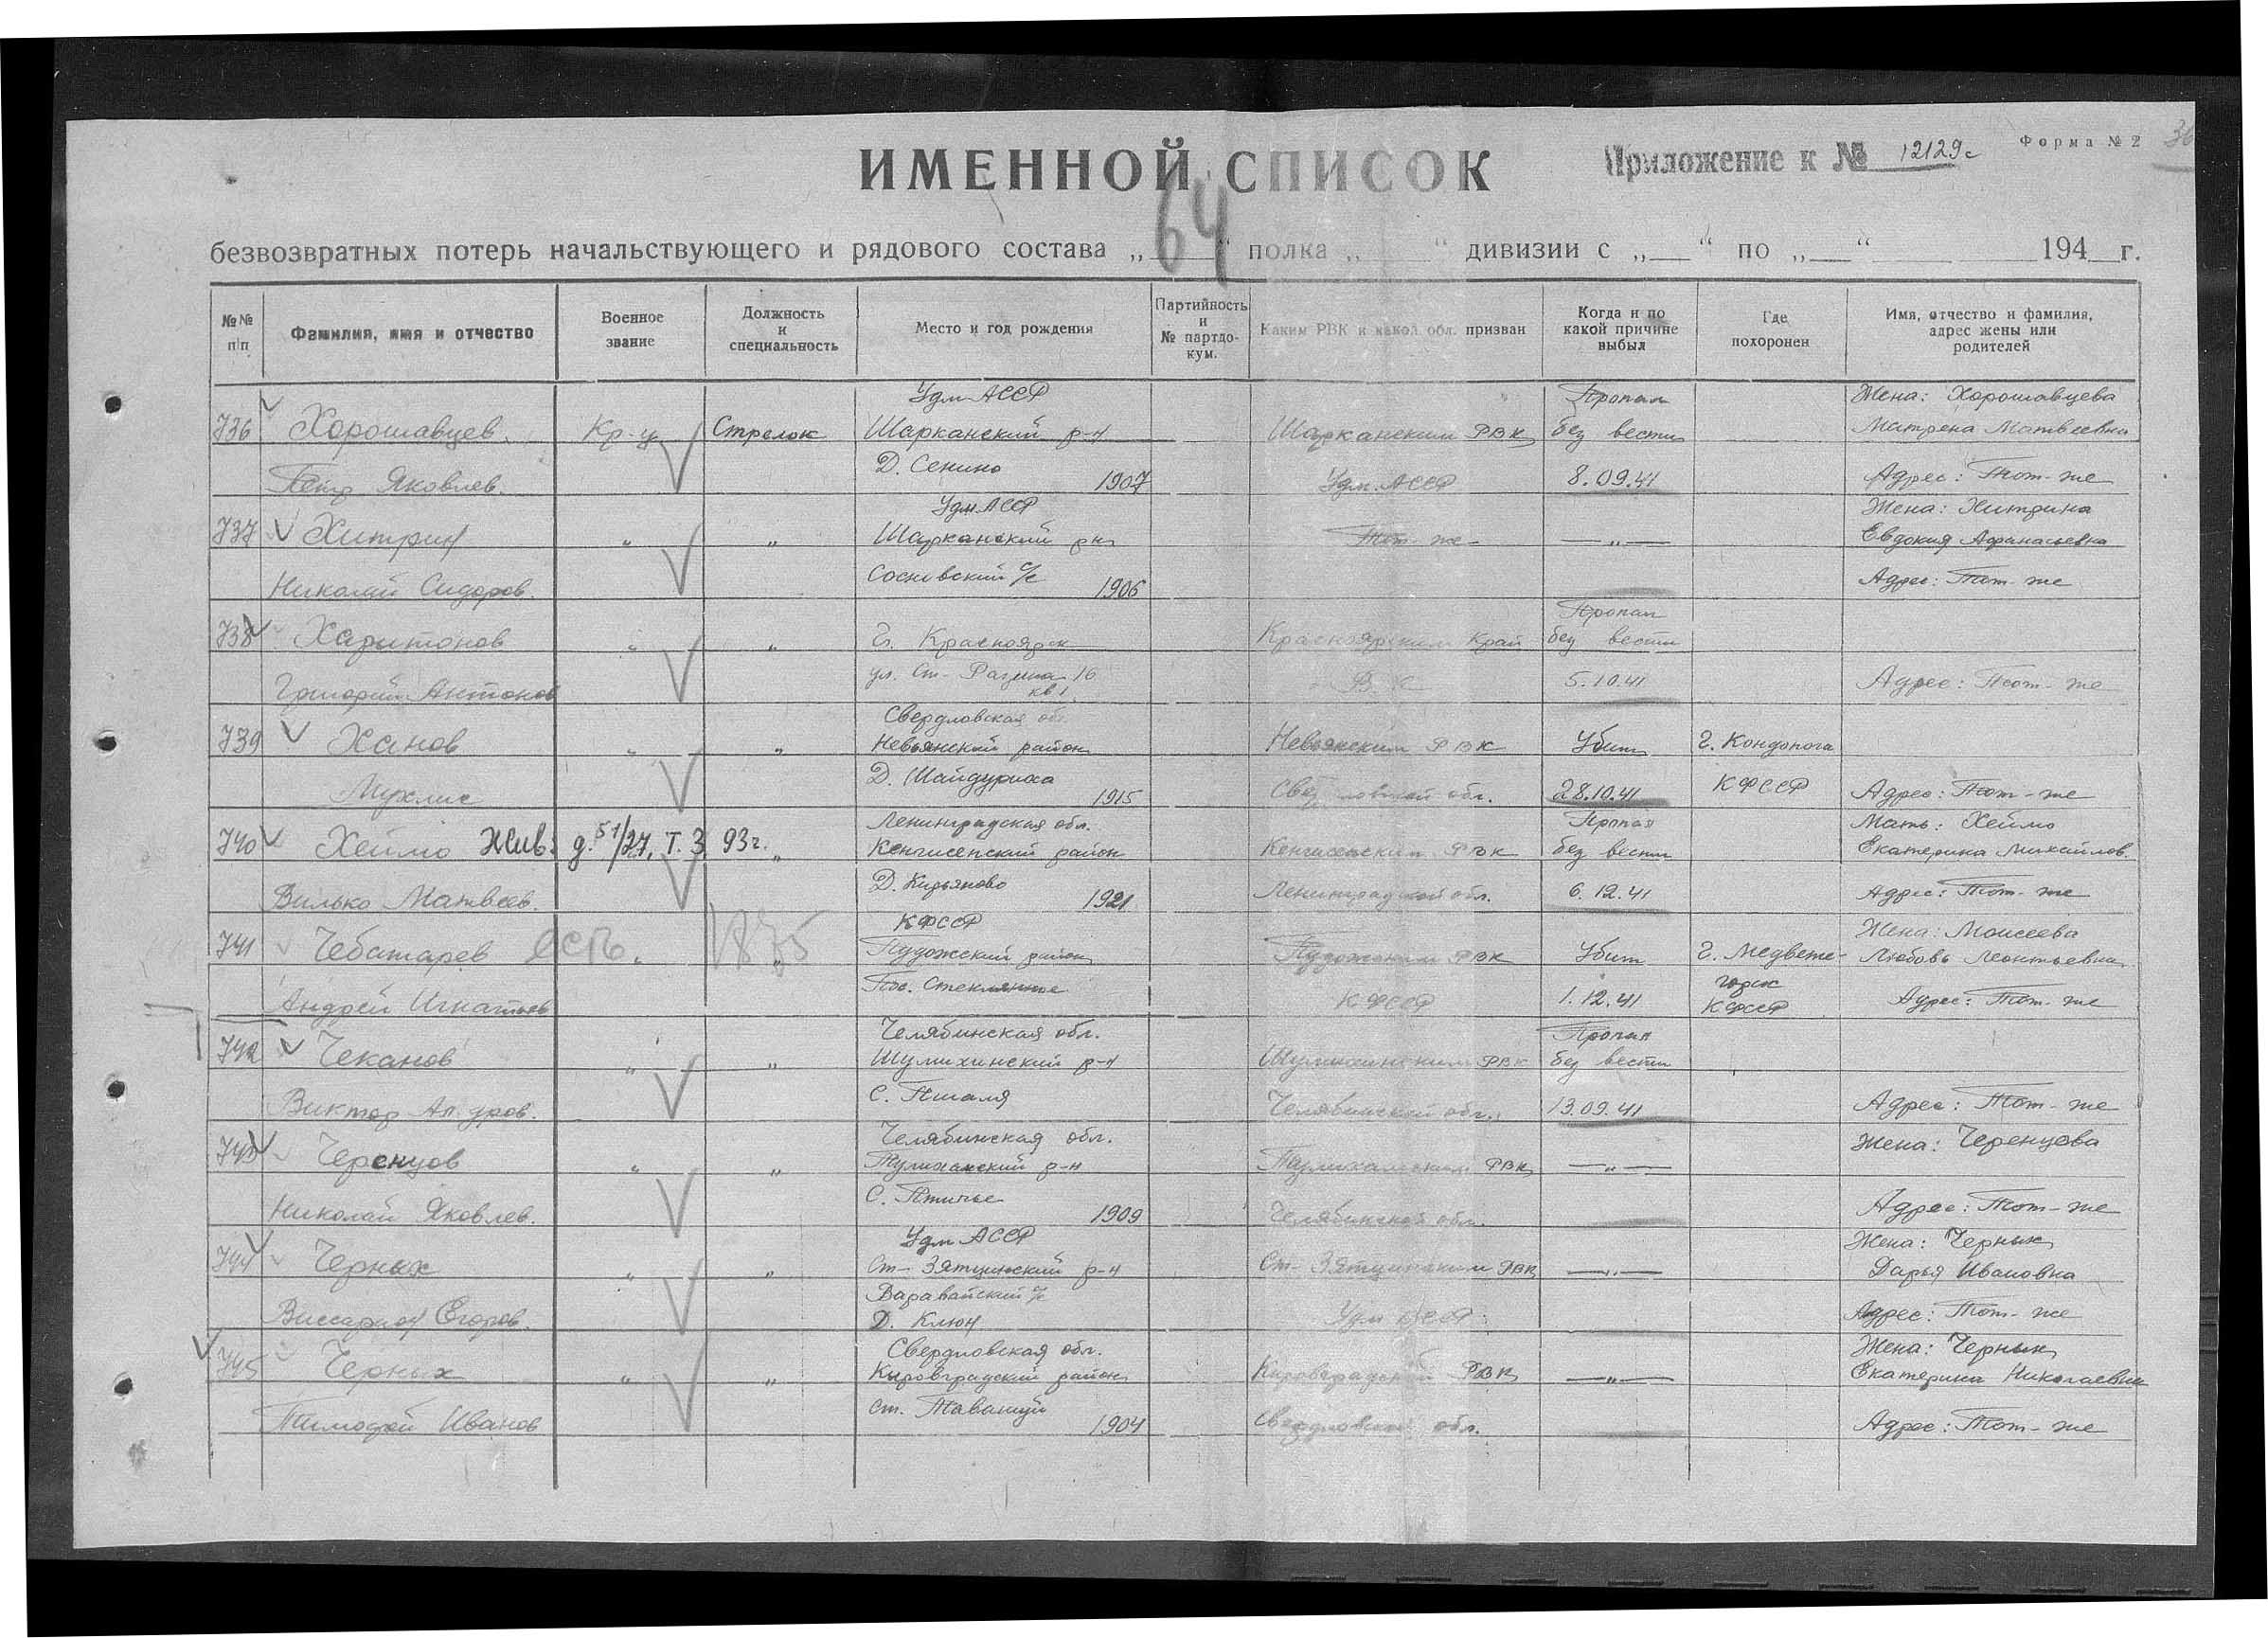 Форма № 2
ИМЕННОЙ СПИСОК
Приложение к № 12129с
64
безвозвратных потерь начальствующего и рядового состава „ “ полка „ “ дивизии с „ “ по „ “ 194 г.
№№ п|п
Фамилия, имя и отчество
Военное звание
Должность и специальность
Место и год рождения
Партийность и № партдокум.
Каким РВК и какой обл. призван
Когда и по какой причине выбыл
Где похоронен
Имя, отчество и фамилия, адрес жены или родителей
Удм АССР Пропал Жена: Хорошавцева
736 Хорошавцев Кр-ц Стрелок Шарканский р-н Шарканским РВК без вести Матрена Матвеевна
Петр Яковлев. Д. Сенино 1907 Удм. АССР 8.09.41 Адрес: Тот-же
Удм АССР Жена: Хитрина
737 Хитрин " " Шарканский р-н Тот-же —"— Евдокия Афанасьевна
Николай Сидоров. Сосновский с/с 1906 Адрес: Тот-же
Пропал
738 Харитонов " " г. Красноярск Красноярским край без вести
Григорий Антонов ул. Ст-Разина 16 кв 1 В К 5.10.41 Адрес: Тот-же
Свердловская об.
739 Ханов " " Невьянский район Невьянским РВК Убит г. Кондопога
Мухлис Д. Шайдуриха 1915 Свердловской обл. 28.10.41 КФССР Адрес: Тот-же
Ленинградская обл. Пропал Мать: Хеймо
740 Хеймо Жив. д. 51/27, Т. 3 93г. " Кенгисепский район Кенгисепским РВК без вести Екатерина Михайлов.
Вилько Матвеев. Д. Кирьяново 1921 Ленинградской обл. 6.12.41 Адрес: Тот-же
КФССР Жена: Моисеева
741 Чебатарев есть " " Пудожский район Пудожским РВК Убит г. Медвеже- Любовь Леонтьевна
Андрей Игнатьев Пос. Стеклянное КФССР 1.12.41 горск КФССР Адрес: Тот-же
Челябинская обл. Пропал
742 Чеканов " " Шумихинский р-н Шумихинским РВК без вести
Виктор Ал.дров. С. Птиаля Челябинской обл. 13.09.41 Адрес: Тот-же
Челябинская обл. Жена: Черенцова
743 Черенцов " " РВК —"—
Николай Яковлев. С. Птичье 1909 Челябинской обл. Адрес: Тот-же
Удм АССР Жена: Черных
744 Черных " " Ст-Зятцинский р-н Ст-Зятцинским РВК —"— Дарья Ивановна
Варавайский с/с
Виссарион Егоров. Д. Клюн Удм АССР Адрес: Тот-же
Свердловская обл. Жена: Черных
745 Черных " " Кировградский район Кировградский РВК —"— Екатерина Николаевна
Тимофей Иванов ст. Таватуй 1904 Свердловской обл. Адрес: Тот-же